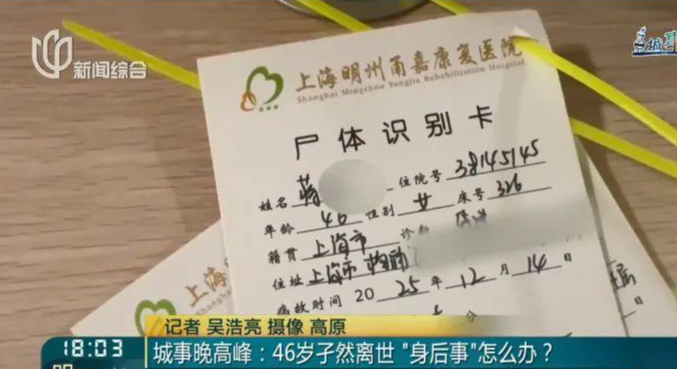 新闻综合
上海明州甬嘉康复医院
Shanghai Mingzhou Yongjia Rehabilitation Hospital
尸体识别卡
姓名 蒋 住院号 38145145
年龄 46 性别 女 床号 326
籍贯 上海市 诊断
住址 上海市
病故时间 2025年12月14日
上海
记者 吴浩亮 摄像 高原
18:03
城事晚高峰：46岁孑然离世 "身后事"怎么办？